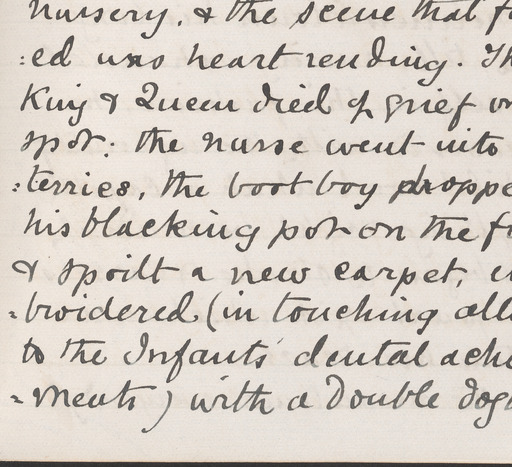 nursery, & the scene that
:ed was heart rending. Th
King & Queen died of grief on
spot: the nurse went into
:terries, the boot boy droppe
his blacking pot on the f
& spoilt a new carpet, e
=broidered (in touching allu
to the Infants' dental achi
=ments) with a Double dog